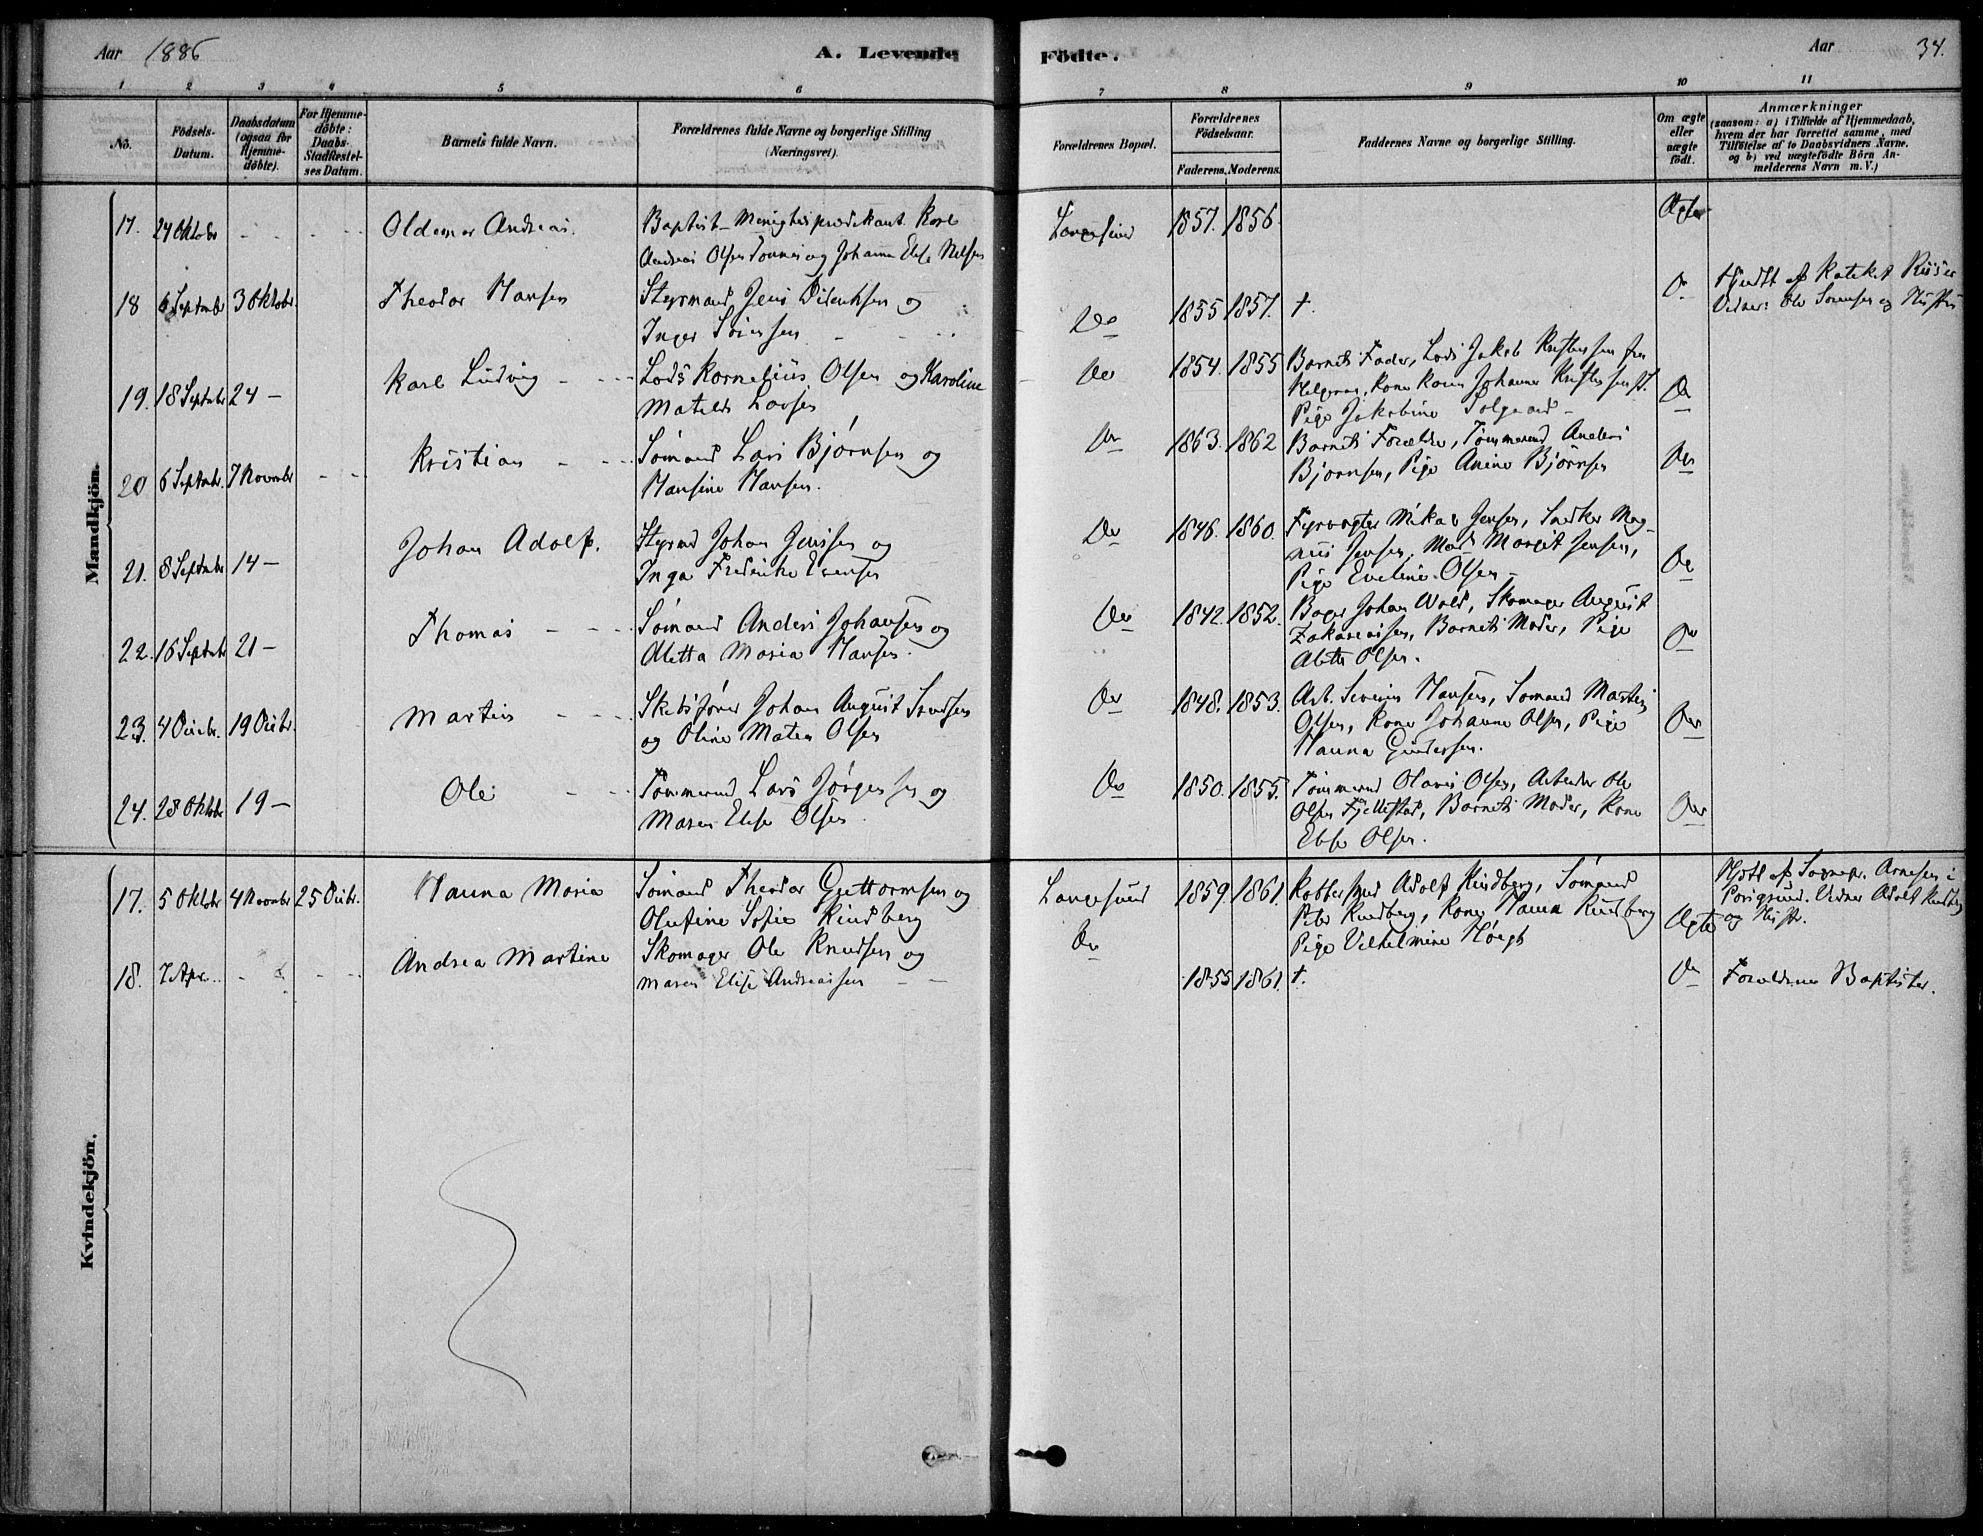 Aar 1886 A. Levende Födte. Aar 34.
1 2 3 4 5 6 7 8 9 10 11
No.
Födsels-
Datum.
Daabsdatum
(ogsaa for
Hjemme-
döbte).
For Hjemme-
döbte:
Daabs-
Stadfæstel-
ses Datum.
Barnets fulde Navn.
Forældrenes fulde Navne og borgerlige Stilling
(Næringsvei).
Forældrenes Bopæl.
Forældrenes
Födselsaar.
Faderens. Moderens.
Faddernes Navne og borgerlige Stilling.
Om ægte
eller
uægte
födt.
Anmærkninger
(saasom: a) i Tilfælde af Hjemmedaab,
hvem der har forrettet samme, med
Tilföielse af to Daabsvidners Navne.
og b) ved uægtefödte Börn An-
melderens Navn m. V.)
Mandkjön.
17. 24 Oktobr Oldemar Andreas. Baptist-Menighedsprædikant Karl
Andreas Olsen og Johanne Elise Nilsen
Langesund 1857. 1856. Ægte
18 6 Septembr 3 Oktobr. Theodor Hansen Styrmand Jens Didriksen og
Inger Sörensen
Do 1855 1857. †. Do Hjdbt af Kateket Riiser
Vidner: Ole Sörensen og Hustru
19. 18 Septembr 24 — Karl Ludvig Lods Kornelius Olsen og Karoline
Matilde Larsen
Do 1854. 1855 Barnets Fader, Lods Jakob Kristensen fra
Helgeraa, Kone Karen Johanne Kristensen
Pige Jakobine Solgaard Do
20 6 Septembr. 7 Novembr Kristian Sömand Lars Björnsen og
Hansine Hansen.
Do 1863. 1862 Barnets Forældre, Tömmermd Anders
Björnsen, Pige Anine Björnsen Do
21. 8 Septembr 14 — Johan Adolf. Styrmd Johan Jenssen og
Inga Fredrikke Evensen
Do 1846. 1860. Fyrvogter Nikolai Jensen, Snedker Mag-
nus Jensen, Mad. Margit Jensen,
Pige Eveline Olsen Do
22. 16 Septembr 21 — Thomas Sömand Anders Johansen og
Aletta Maria Hansen.
Do 1842. 1852. Bager Johan Wold, Skomager August
Zakariassen, Barnets Moder, Pige
Olsen. Do
23. 4 Decbr. 19 Decbr. Martin Skibsförer Johan August Svendsen
og Oline Matea Olsen
Do 1848. 1853. Arb. Severin Hansen, Sömand Martin
Olsen, Kone Johanne Olsen, Pige
Hanna Gundersen. Do
24. 28 Oktobr 19 — Ole Tömmermd Lars Jörgensen og
Maren Elise Olsen
Do 1850. 1855. Tömmermd Olaves Olsen, Arbeider Ole
Olsen Fjellestad, Barnets Moder, Kone
Olsen. Do
Kvindekjön.
17. 5 Oktobr 4 Novembr 25 Decbr. Hanna Maria Sömand Theodor Guttormsen og
Olufine Sofie Rindberg
Langesund 1859. 1861. Adolf Rindberg, Sömand
Peter Rindberg, Kone Hanna Rindberg
Pige Vilhelmine Höegh Ægte Hjdbt af Sognepr. Arnesen i
Porsgrund. Vidner Adolf Rindberg
og Hustr.
18. 7 Apr. Andrea Martine Skomager Ole Knudsen og
Maren Elise Andreassen
Do 1855 1861. †. Do Forældrene Baptister.